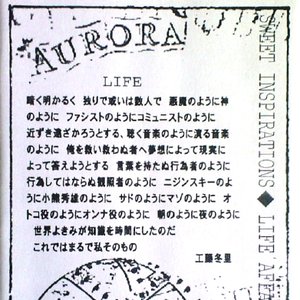 AURORA
LIFE
暗く明かるく 独りで或いは数人で 悪魔のように神
のように ファシストのようにコミュニストのように
近ずき遠ざかろうとする、聴く音楽のように演る音楽
のように 俺を救い救わぬ者へ夢想によって現実に
よって答えようとする 言葉を持たぬ行為者のように
行為してはならぬ観照者のように ニジンスキーのよ
うに小熊秀雄のように サドのようにマゾのように オ
トコ役のようにオンナ役のように 朝のように夜のように
世界よきみが知識を時間にしたのだ
これではまるで私そのもの
工藤冬里
SWEET INSPIRATIONS◆LIFE